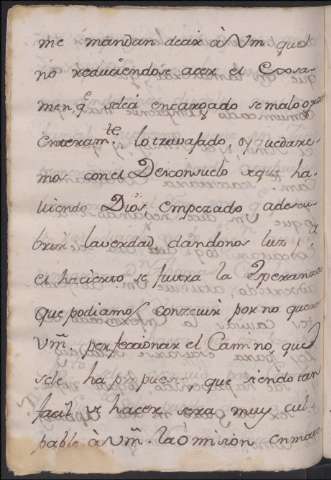 me mandan decir à Vm que
no reduciendose acer el Cosa-
men q.e sdeà encargado se malogra
enteram.te lo travajado, y quedare-
mos con el Desconsuelo de q.e ha-
viendo Dios empezado adescu-
brir la verdad, dandonos luz, y
el hacierto, se fuerza la Speranza
que podiamos conseuir por no querer
Vm. perfeccionar el Camino, que
sele ha propuesto, que siendo tan
facil el hacer sera muy cul-
pable à Vm. la omision en mate